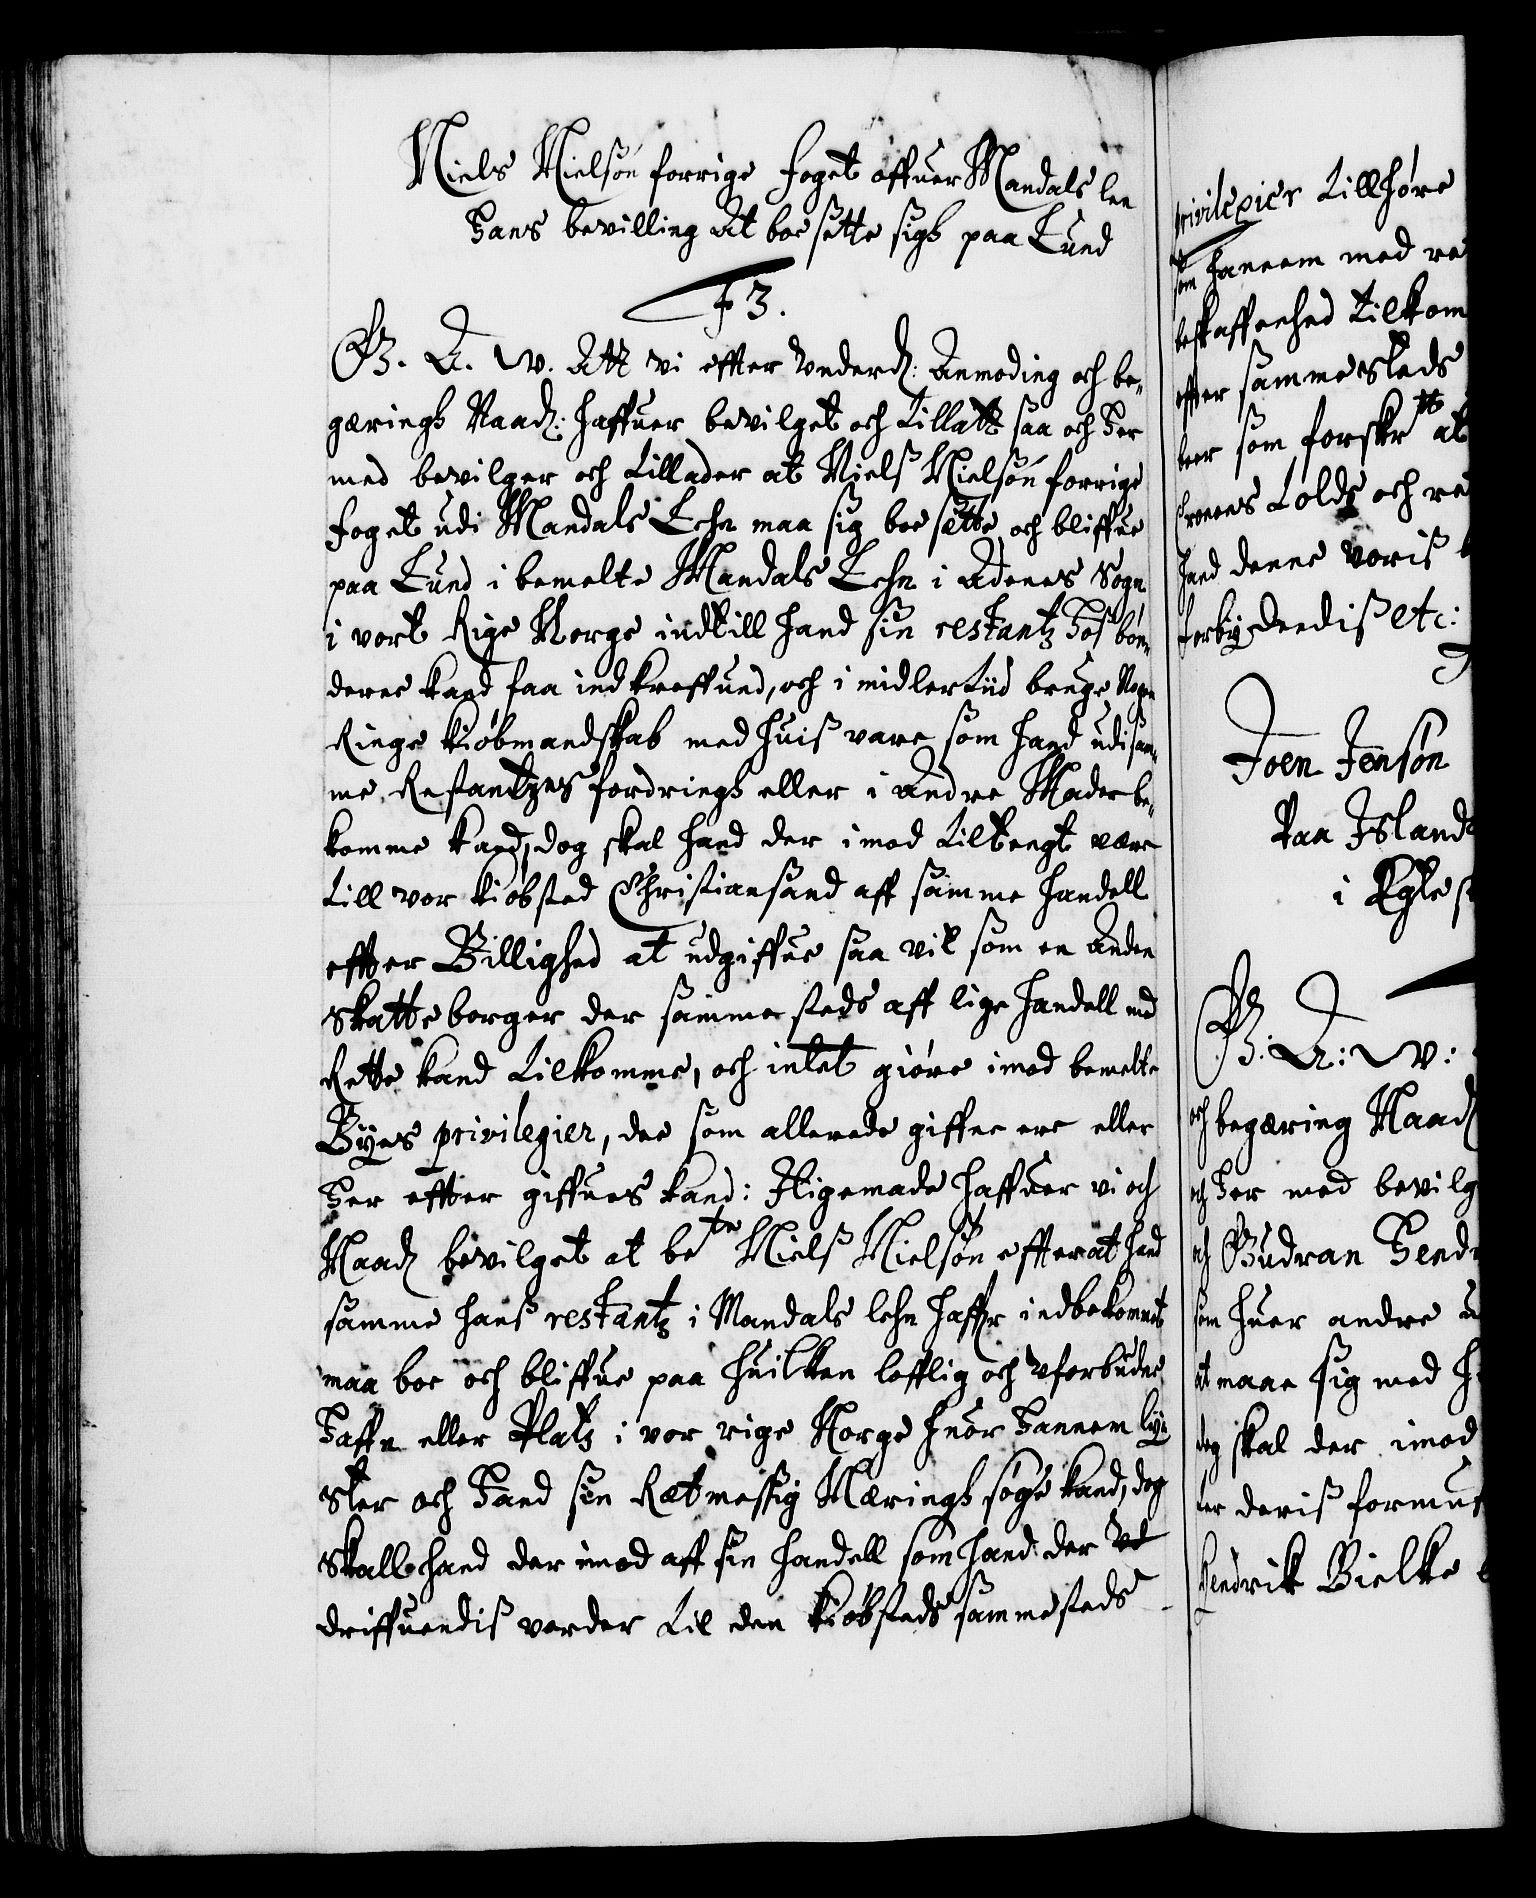 Niels Nielsøn forrige foget offuer Mandals len
Hans bevilling At boesette sigh paa Lund
F 3.
G. A. W. Att vi effter Underd: Anmoding och be-
gæringh Naad: haffuer bevilget och tillatt saa och her
med bevilger och tillader at Nielß Nielsøn forrige
foget udi Mandals Lehn maa sig boesette och bliffue
paa Lund i bemelte Mandals Lehn i Adenes Sogn
i vort Rige Norge indtill hand sin restantz hoß bøn-
derne kand faa indkreffued, och i midlertiid bruge Nogen
Ringe kiøbmandskab med huiß vare som hand udi sam-
me Restantzes fordringh eller i Andre Maader be-
komme kand, dog skal hand der imod tiltengt være
till vor kiøbsted Christiansand aff samme handell
effter Billighed at udgiffue saa vit som en Anden
skatteborger der sammesteds aff lige handell med
Rette kand tilkomme, och intet giøre imod bemelte
Byes privilegier, dee som allerede giffne ere eller
her effter giffues kand: Iligemaade haffuer vi och
Naad bevilget at bete Nielß Nielsøn effterat hand
samme hanß restantz i Mandals lehn haffr indbekommet
maa boe och bliffue paa huilken lofflig och Uforbuden
Haffn eller Platz i vor rige Norge huor hannem lyy-
ster och hand sin Retmessig Næringh søge kand, dog
skalle hand der imod aff sin handell som hand der ved
driffuendiß vorder til den kiøbsteds sammesteds
privilegier tillhøre
som hannem med re
beskaffenhed tilkom
effter sammesteds
beer som forskrtt at
Cronens Told och re
hand denne voriß
forbydendiß etc:
Joen Jensøn
Paa Island
i Egte
G: A: W:
och begæring Naad
och her med bevilg
och Gudran Hend
som huer andre u
at maae sig med h
dog skal der imod
ter deriß formu
Hendrik Bielke